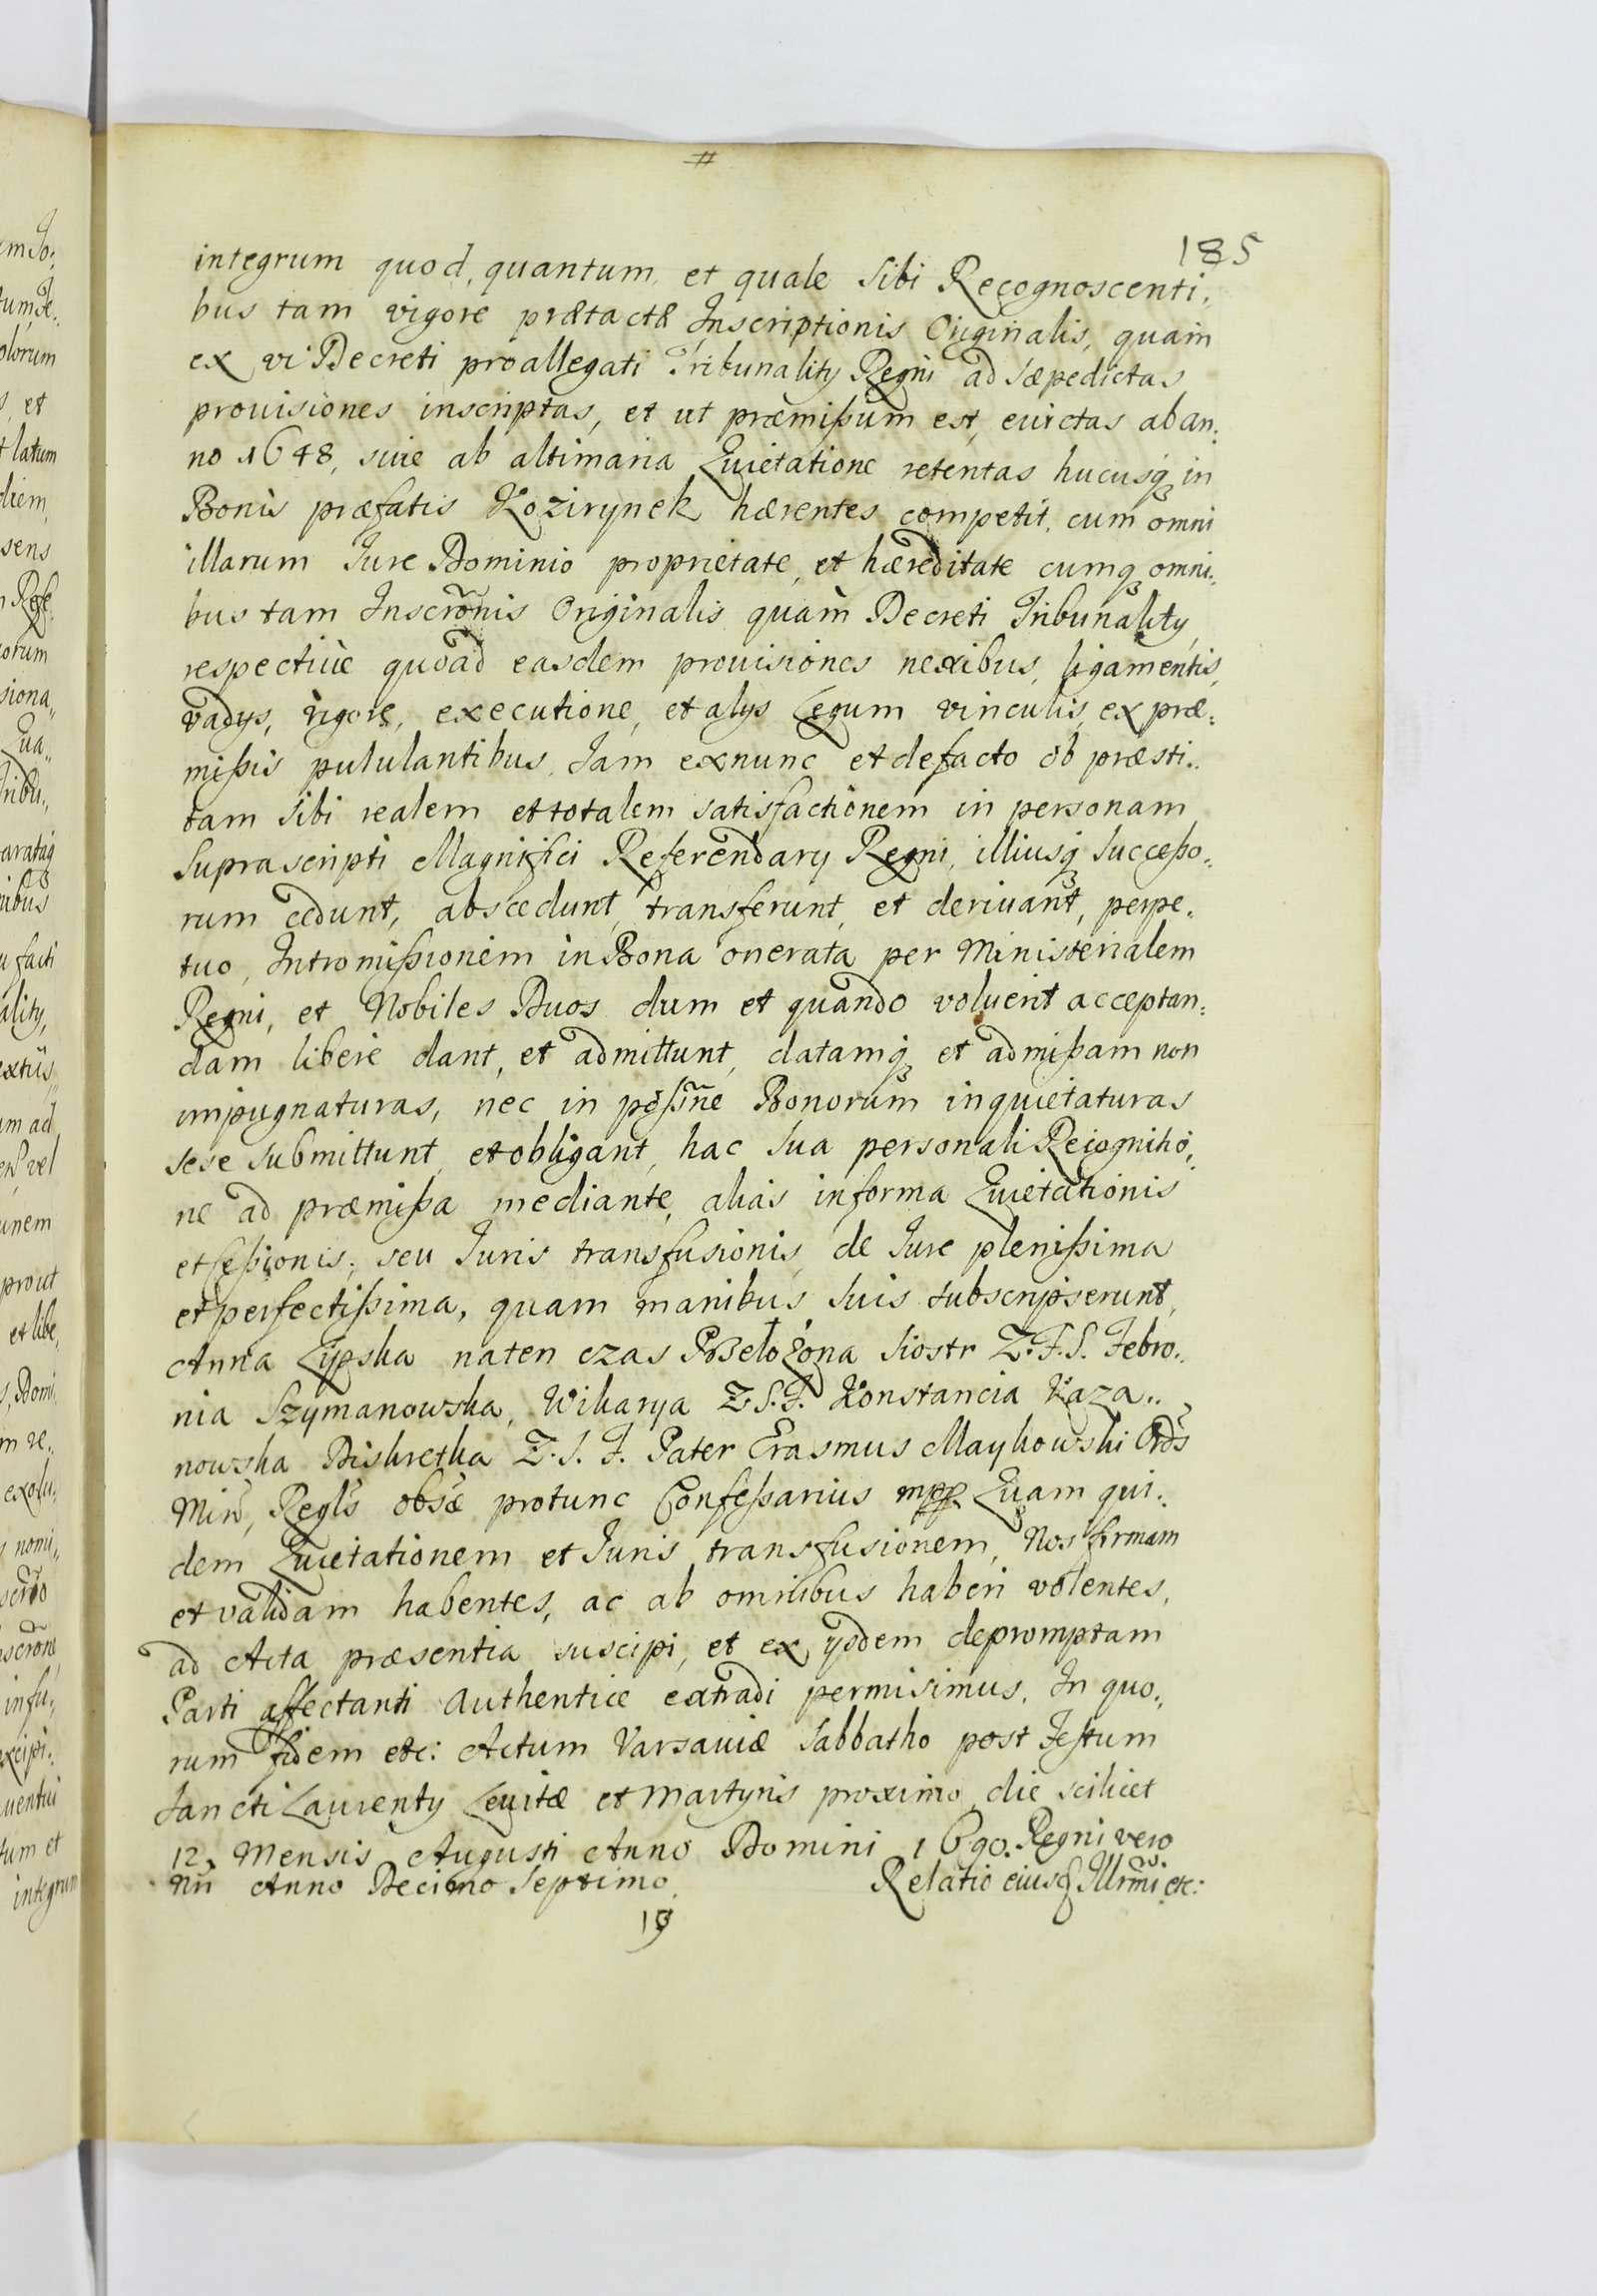 #
185
integrum quod, quantum, et quale sibi Recognoscenti,
bus tam vigore prætactæ Inscriptionis Originalis, quam
ex vi Decreti proallegati Tribunalitÿ Regni ad sæpedictas
prouisiones inscriptas, et ut præmißum est, euictas ab an:
no 1648, siue ab altimaria Quietatione retentas hucusq; in
Bonis præfatis Kozirynek hærentes competit, cum omni
illarum Iure Dominio proprietate, et hæreditate cumq; omni:
bus tam Inscrõnis Originalis quàm Decreti Tribunalitÿ,
respectiuè quoad easdem prouisiones nexibus, ligamentis,
vadÿs, rigore, executione, et alÿs Legum vinculis, ex præ:
mißis pululantibus. Iam exnunc et defacto ob præsti..
tam sibi realem et totalem satisfactionem in personam
suprascripti Magnifici Referendarÿ Regni, illiusq; succeßo:
rum cedunt, abscedunt, transferunt, et deriuant, perpe:
tuo, Intromißionem in Bona onerata per Ministerialem
Regni, et Nobiles Duos dum et quando voluerit acceptan:
dam liberè dant, et admittunt, datamq; et admißam non
impugnaturas, nec in poßne Bonorum inquietaturas
sese submittunt, et obligant, hac sua personali Recognitio,
ne ad præmißa mediante, alias in forma Quietationis
et Ceßionis, seu Iuris transfusionis, de Iure plenißima
et perfectißima, quam manibus suis subscripserunt,
Anna Lipska naten czas Przełożona Siostr Z. F. S. Febro..
nia Szymanowska, Wikarya Z. S. F. Konstancia Kaza..
nowska Diskretka Z. S. F. Pater Erasmus Maykowski Ords
Min, Regls obsæ protunc Confeßarius mpp. Quam qui:
dem Quietationem et Iuris transfusionem, Nos firmam
et validam habentes, ac ab omnibus haberi volentes,
ad Acta præsentia suscipi, et ex ÿsdem depromptam
Parti affectanti Authenticè extradi permisimus. In quo:
rum fidem etc: Actum Varsauiæ Sabbatho post Festum
Sancti Laurentÿ Leuitæ et Martyris proximo, die scilicet
12, Mensis Augusti Anno Domini 1690. Regni vero
Nri Anno Decimo Septimo. Relatio eiusd Illrmi etc: